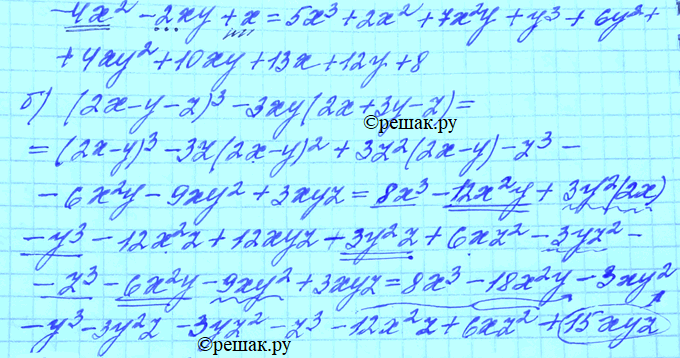 -4x² - 2xy + x = 5x³ + 2x² + 7x²y + y³ + 6y² +
+ 4xy² + 10xy + 13x + 12y + 8
б) (2x-y-z)³ - 3xy(2x+3y-z) =
©решак.ру
= (2x-y)³ - 3z(2x-y)² + 3z²(2x-y) - z³ -
- 6x²y - 9xy² + 3xyz = 8x³ - 12x²y + 3y²(2x)
- y³ - 12x²z + 12xyz + 3y²z + 6xz² - 3yz² -
- z³ - 6x²y - 9xy² + 3xyz = 8x³ - 18x²y - 3xy²
- y³ - 3y²z - 3yz² - z³ - 12x²z + 6xz² + 15xyz
©решак.ру